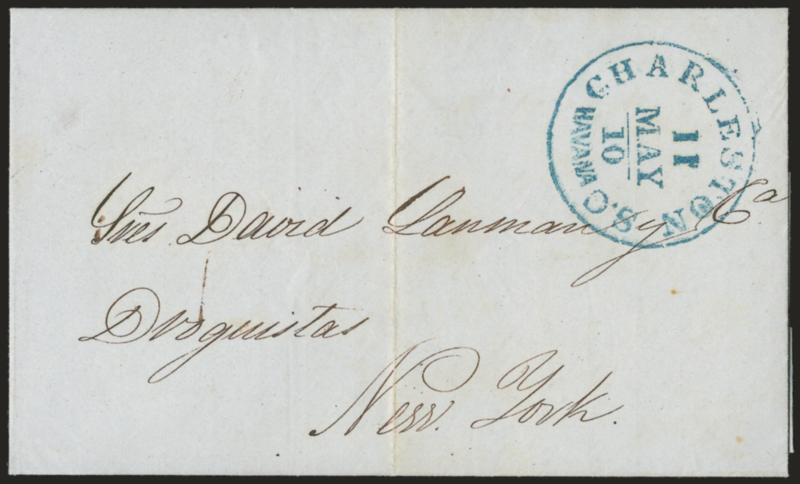 CHARLESTON S.C
HAVANA
11
MAY
10
Sres. David Lanman y Ca
Droguistas
New. York.